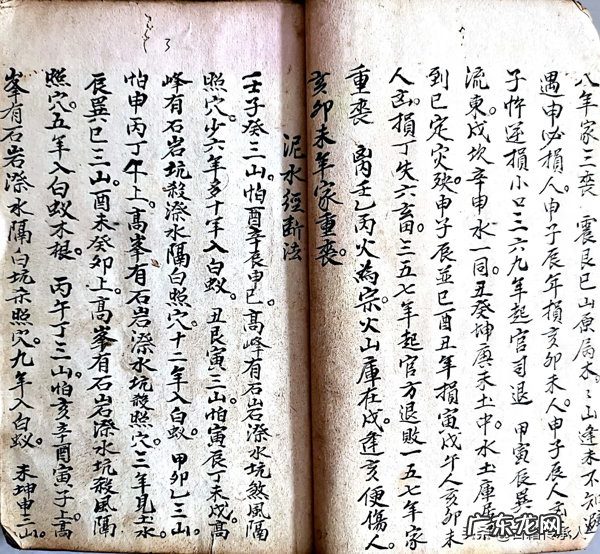 八年家三喪 震艮巳山原屬木。三山逢未不知
遇申必損人。申子辰年損亥卯未人。申子辰人
子忤逆損小口三六九年起官司退 甲寅辰巽
流東。戌坎辛申水一同。丑癸坤庚未土中。水土庫
到巳定灾殃 申子辰並巳酉丑年損寅戌午人亥卯未
人。凶。損丁失六畜。三五七年起官方退敗一五七年家
重喪 离壬乙丙火為宗。火山庫在戌。逢亥便傷人。
亥卯未年家重喪。
泥水經斷法
壬子癸三山。怕酉辛戌申巳。高峰有石岩漈水坑煞風隔
照穴。少六年多十年入白蚁。丑艮寅三山。怕寅辰丁未戌高
峰有石岩坑殺漈水隔白照穴。十二年入白蚁。甲卯乙三山
怕申丙丁午上。高峯有石岩漈水坑殺照穴。三年見土水
辰巽巳三山。酉未癸卯上。高峯有石岩漈水坑殺風隔
照穴。五年入白蚁木根。丙午丁三山。怕亥辛酉寅子上高
峯有石岩漈水隔白坑杀照穴。九年入白蚁。未坤申三山。
广东龙网